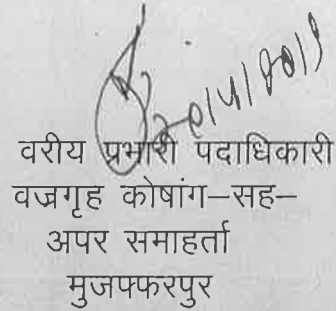 वरीय प्रभारी पदाधिकारी
वज्रगृह कोषांग–सह–
अपर समाहर्ता
मुजफ्फरपुर